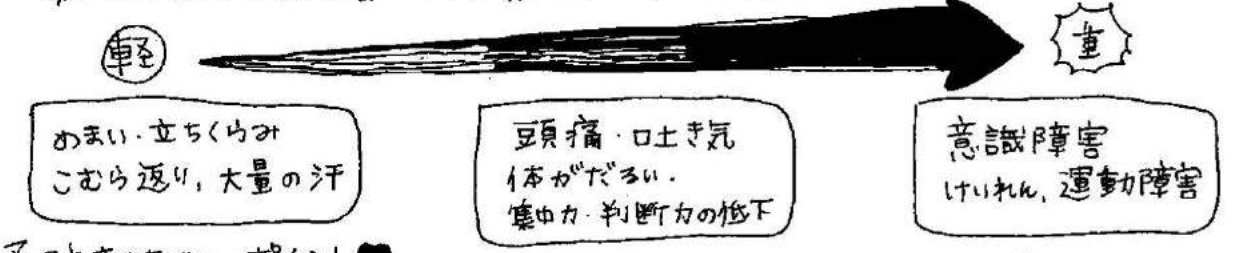 軽
重
めまい・立ちくらみ
こむら返り, 大量の汗
頭痛・吐き気
体がだるい.
集中力・判断力の低下
意識障害
けいれん, 運動障害
ポイント